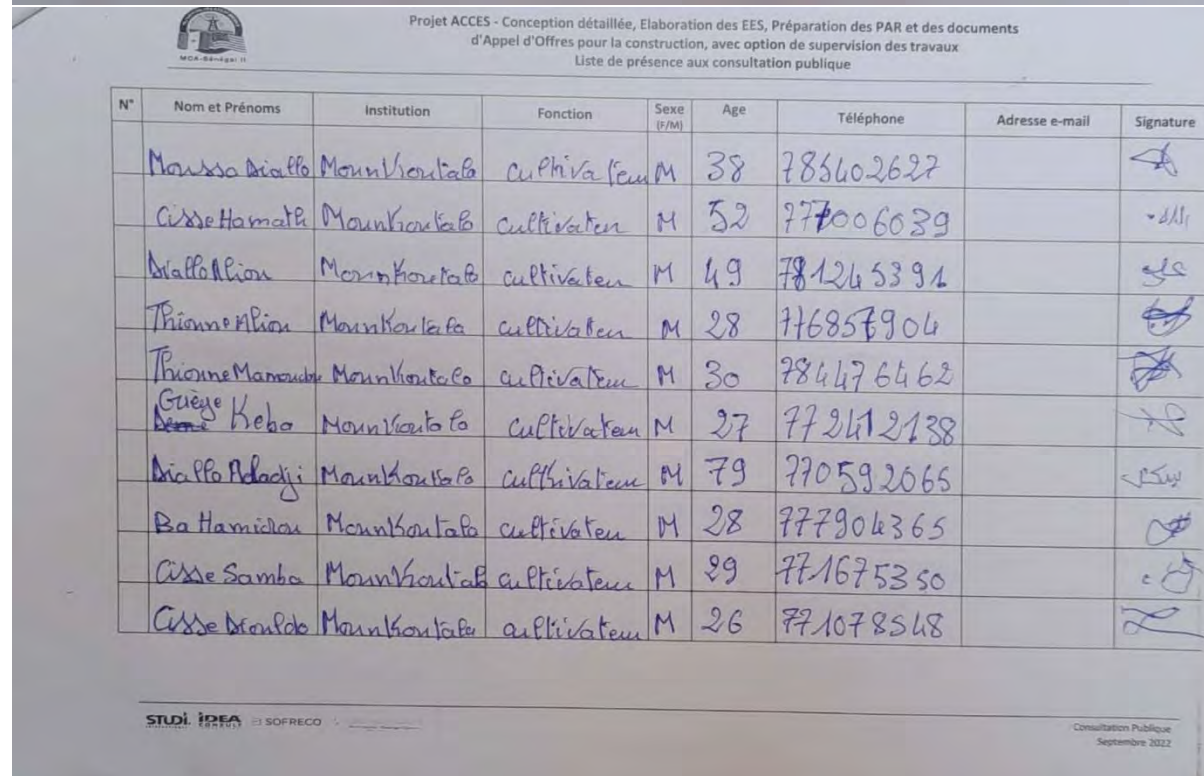 MCA-Sénégal II
Projet ACCES - Conception détaillée, Elaboration des EES, Préparation des PAR et des documents
d'Appel d'Offres pour la construction, avec option de supervision des travaux
Liste de présence aux consultation publique
N° Nom et Prénoms Institution Fonction Sexe (F/M) Age Téléphone Adresse e-mail Signature
Moussa Diallo MounKoutala cultivateur M 38 785402627
Cisse Hamath MounKoutala cultivateur M 52 777006039
Diallo Aliou MounKoutala cultivateur M 49 781245391
Thionne Aliou MounKoutala cultivateur M 28 776857904
Thionne Mamoudou MounKoutala cultivateur M 30 784476462
Guèye Keba MounKoutala cultivateur M 27 772412138
Diallo Eladji MounKoutala culthivateur M 79 770592065
Ba Hamidou MounKoutala cultivateur M 28 777904365
Cisse Samba MounKoutala cultivateur M 29 771675350
Cisse MounKoutala cultivateur M 26 771078548
STUDI IDEA CONSULT SOFRECO
Consultation Publique
Septembre 2022